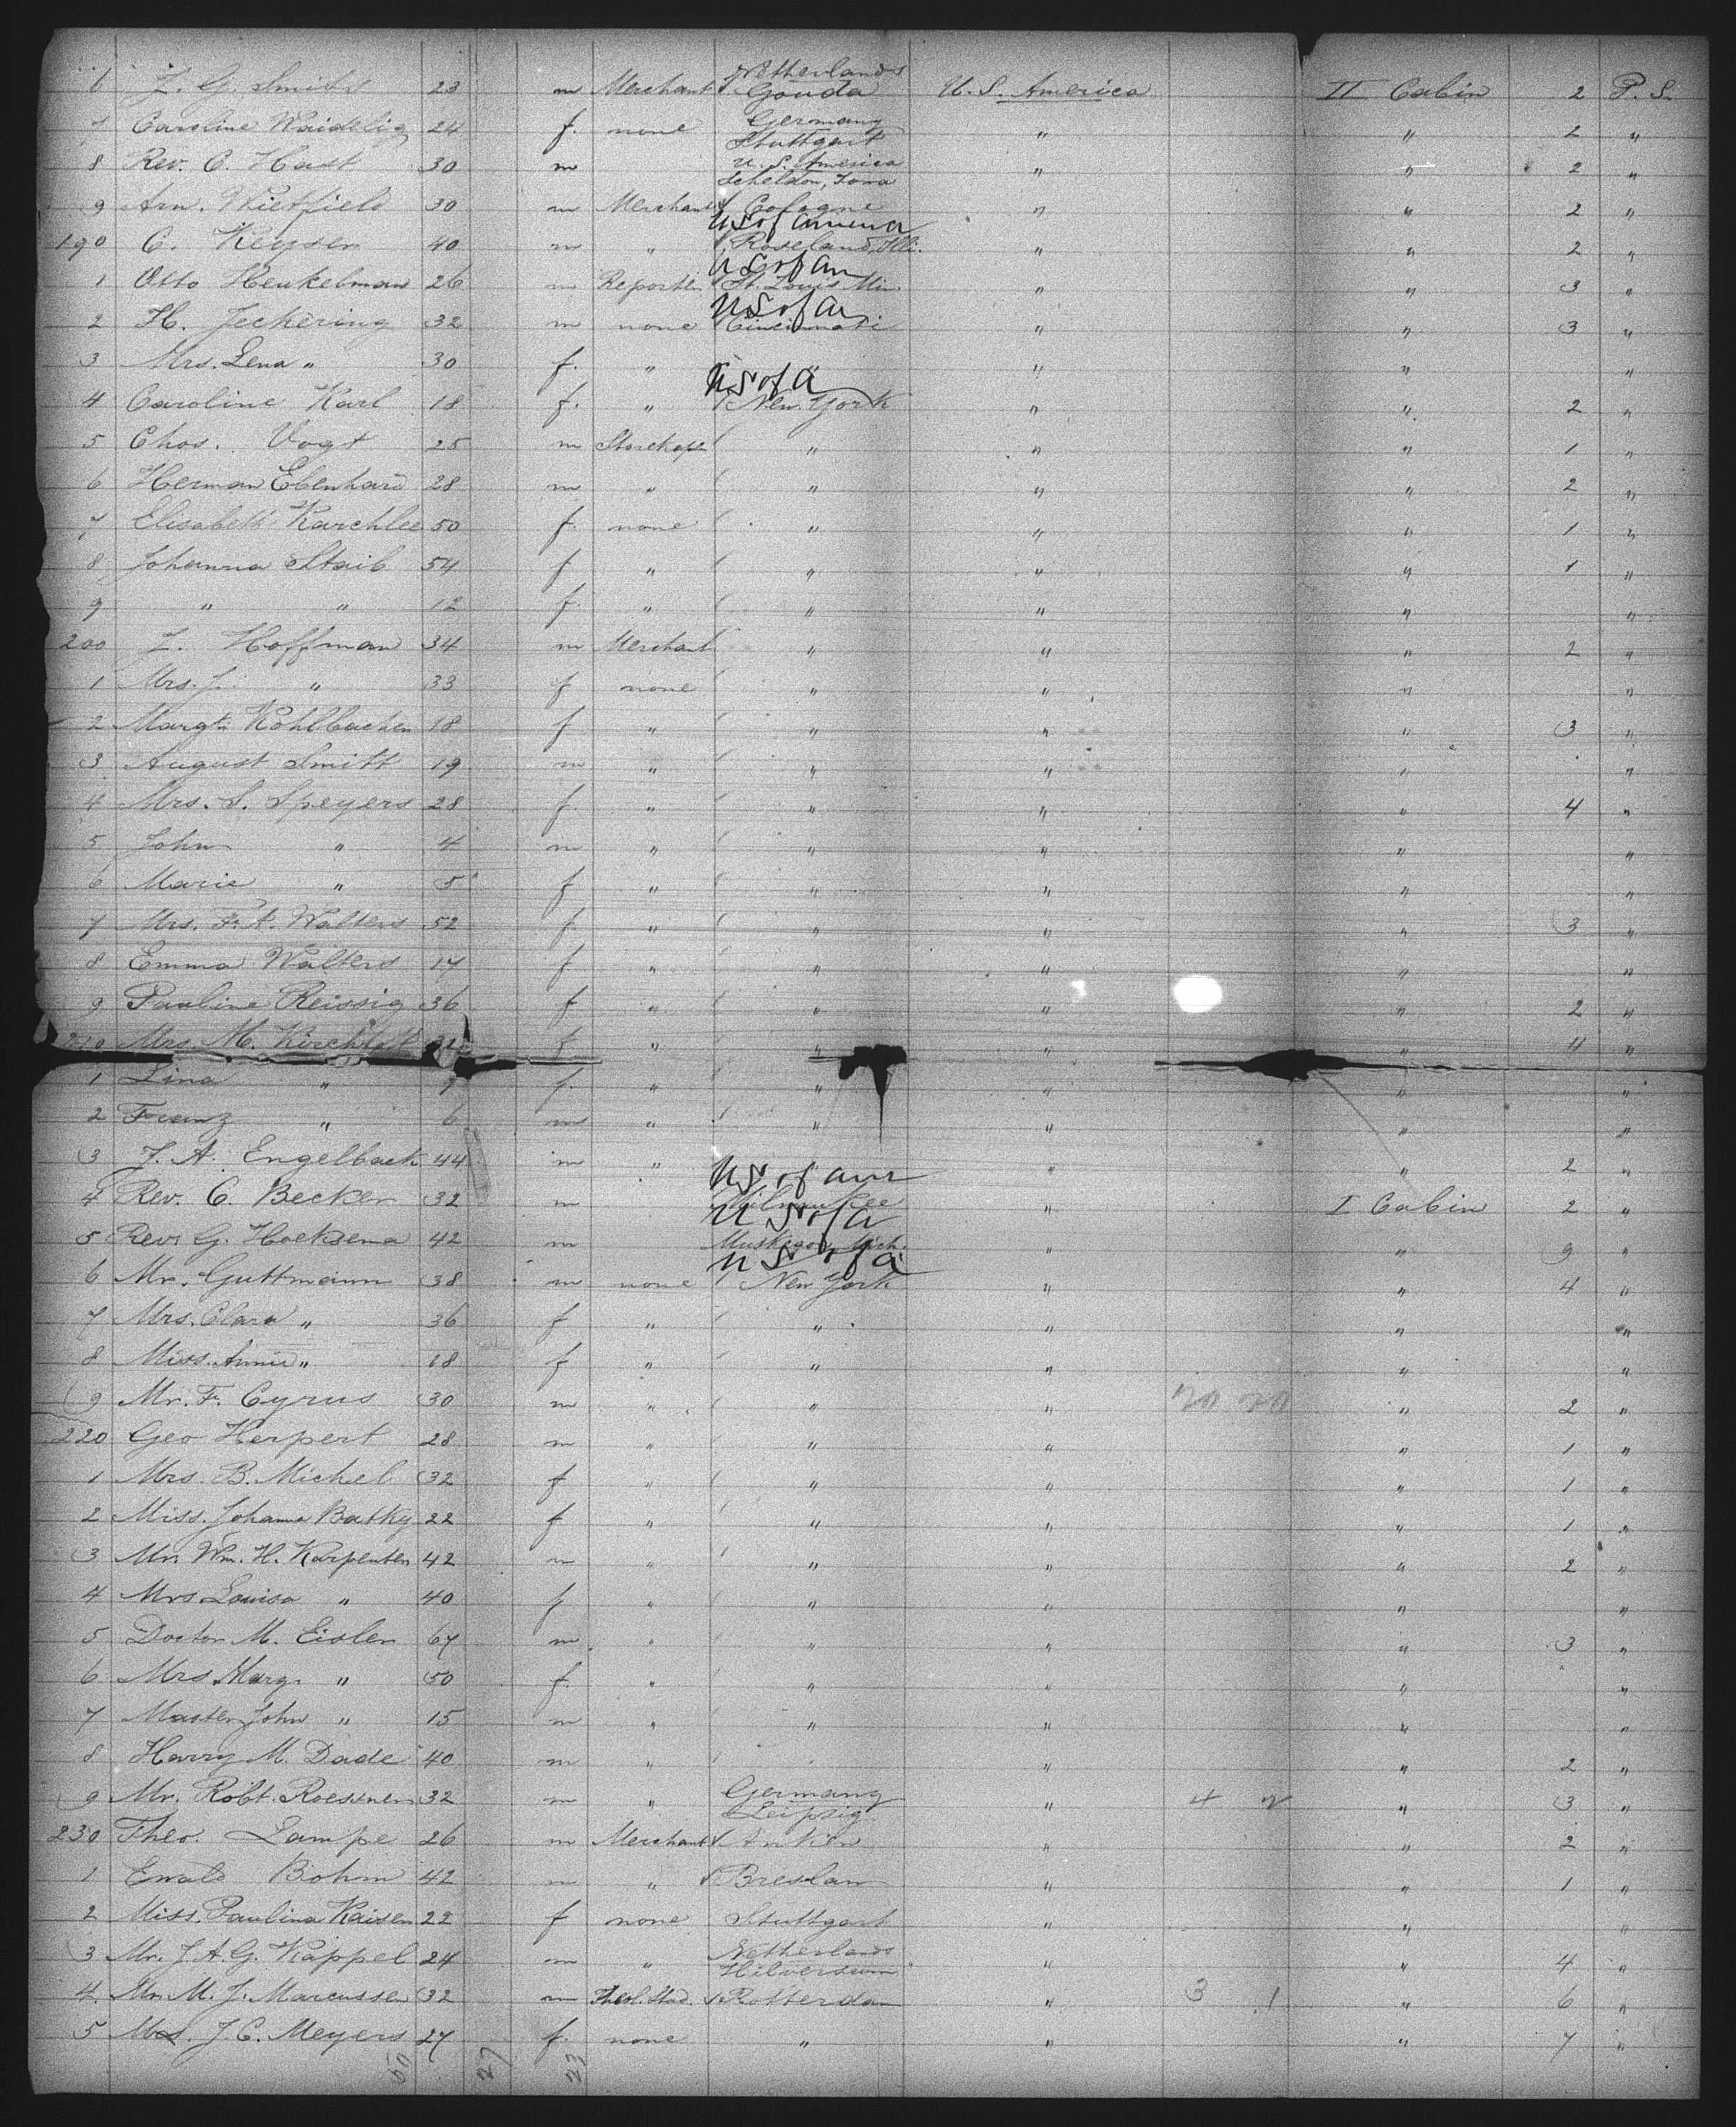 6 J. G. Smits 23 m Merchant Netherlands Gouda U. S. America II Cabin 2 P. S.
7 Caroline Waidelig 24 f. none Germany Stuttgart " " 2 "
8 Rev. C. Hast 30 m U. S. America Scheldon, Iowa " " 2 "
9 Arn. Wietfield 30 m Merchant Cologne " " 2 "
190 C. Keyser 40 m " US of America Roseland, Ill. " " 2 "
1 Otto Heukelman 26 m Reporter US of Am St. Louis Min. " " 3 "
2 H. Jeckering 32 m none US of Am Cincinnati " " 3 "
3 Mrs. Lena " 30 f. " " " " "
4 Caroline Karl 18 f. " US of A New York " " 2 "
5 Chas. Vogt 25 m Storekepr " " " 1 "
6 Herman Ebenhard 28 m " " " " 2 "
7 Elisabeth Karchlee 50 f. none " " " 1 "
8 Johanna Staib 54 f " " " " 1 "
9 " " 12 f. " " " " "
200 L. Hoffman 34 m Merchant " " " 2 "
1 Mrs. J. " 33 f none " " " "
2 Margt. Kohlbacher 18 f " " " " 3 "
3 August Smitt 19 m " " " " "
4 Mrs. S. Speyers 28 f. " " " " 4 "
5 John " 4 m " " " " "
6 Marie " 5 f " " " " "
7 Mrs. Fr. A. Walters 52 f. " " " " 3 "
8 Emma Walters 17 f " " " " "
9 Pauline Reissig 36 f " " " " 2 "
210 Mrs. M. 32 f " " " " 4 "
1 Lina " 7 f. " " " "
2 Franz " 6 m " " " " "
3 J. A. Engelback 44 m " " " 2 "
4 Rev. C. Becker 32 m US of Am Milwaukee " I Cabin 2 "
5 Rev. G. Hoeksema 42 m US of A Muskegon, Mich. " " 9 "
6 Mr. Guttmann 38 m none US of A New York " " 4 "
7 Mrs. Clara " 36 f " " " " "
8 Miss. Annie " 18 f " " " " "
9 Mr. F. Cyrus 30 m " " " 20 20 " 2 "
220 Geo Herpert 28 m " " " " 1 "
1 Mrs. B. Michel 32 f " " " " 1 "
2 Miss. Johanna Batky 22 f " " " " 1 "
3 Mr. Wm. H. Karpenter 42 m " " " " 2 "
4 Mrs Louisa " 40 f " " " " "
5 Doctor M. Eisler 67 m " " " " 3 "
6 Mrs Marg. " 50 f. " " " " "
7 Master John " 15 m " " " " "
8 Harry M. Dade 40 m " " " 2 "
9 Mr. Robt. Roessner 32 m " Germany Leipzig " 4 2 " 3 "
230 Theo. Lampe 26 m Merchant " " 2 "
1 Ewald Bohm 42 m " Breslau " " 1 "
2 Miss. Paulina Kaiser 22 f none Stuttgart " " "
3 Mr. J. A. G. Kappel 24 m " Netherlands Hilversum " " 4 "
4 Mr. M. J. Marcusse 32 m Theol. Stud. Rotterdam " 3 1 " 6 "
5 Mrs. J. C. Meyers 27 f. none " " " 7 "
50 27 23